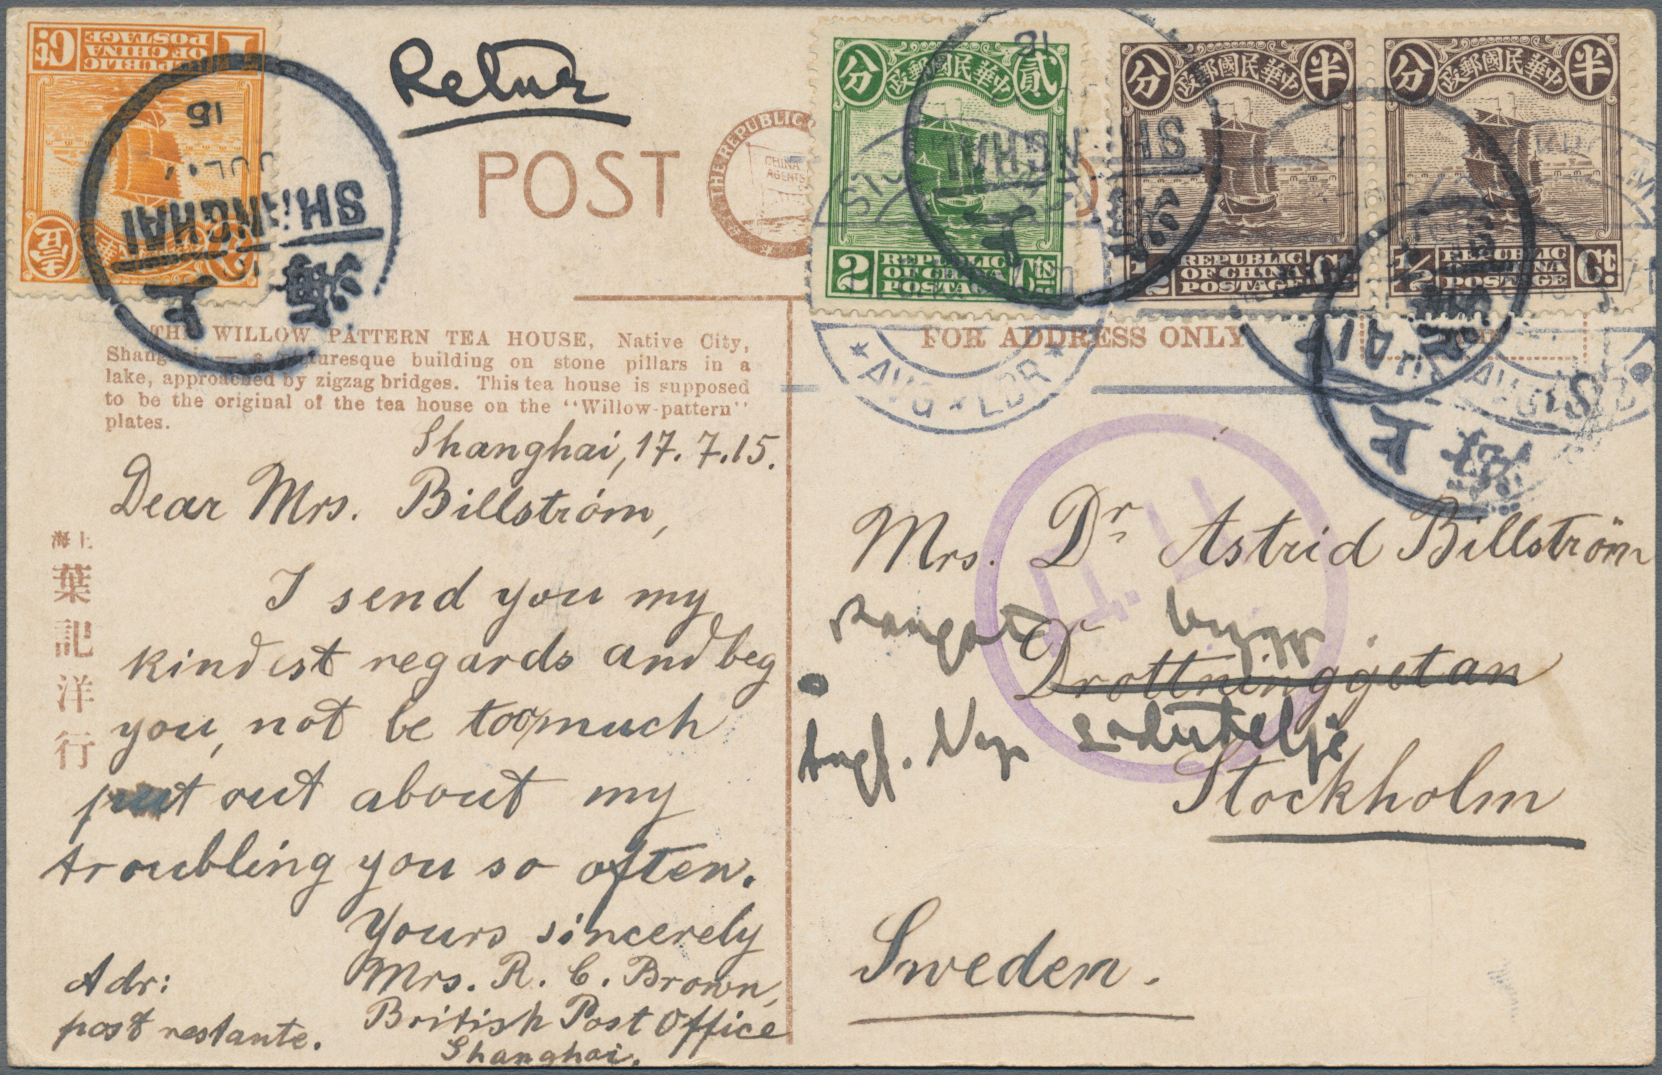 1 Cts
REPUBLIC
OF CHINA
POSTAGE
15
JUL.
SHANGHAI
上海
Retur
POST
THE REPUBLIC
CHINA
AGENTS
貳分
中華民國郵政
2 Cts
REPUBLIC
OF CHINA
POSTAGE
SHANGHAI
上海
半分
中華民國郵政
1/2 Ct
REPUBLIC
OF CHINA
POSTAGE
半分
中華民國郵政
1/2 Ct
REPUBLIC
OF CHINA
POSTAGE
AVG * LBR *
THE WILLOW PATTERN TEA HOUSE, Native City,
Shanghai — a picturesque building on stone pillars in a
lake, approached by zigzag bridges. This tea house is supposed
to be the original of the tea house on the "Willow-pattern"
plates.
FOR ADDRESS ONLY
Shanghai, 17. 7. 15.
Dear Mrs. Billström,
I send you my
kindest regards and beg
you, not be too much
put out about my
troubling you so often.
Yours sincerely
Mrs. R. C. Brown,
British Post Office
Shanghai.
Adr:
post restante.
上海
葉記洋行
Mrs. Dr Astrid Billström
Drottninggatan
Stockholm
Sweden.